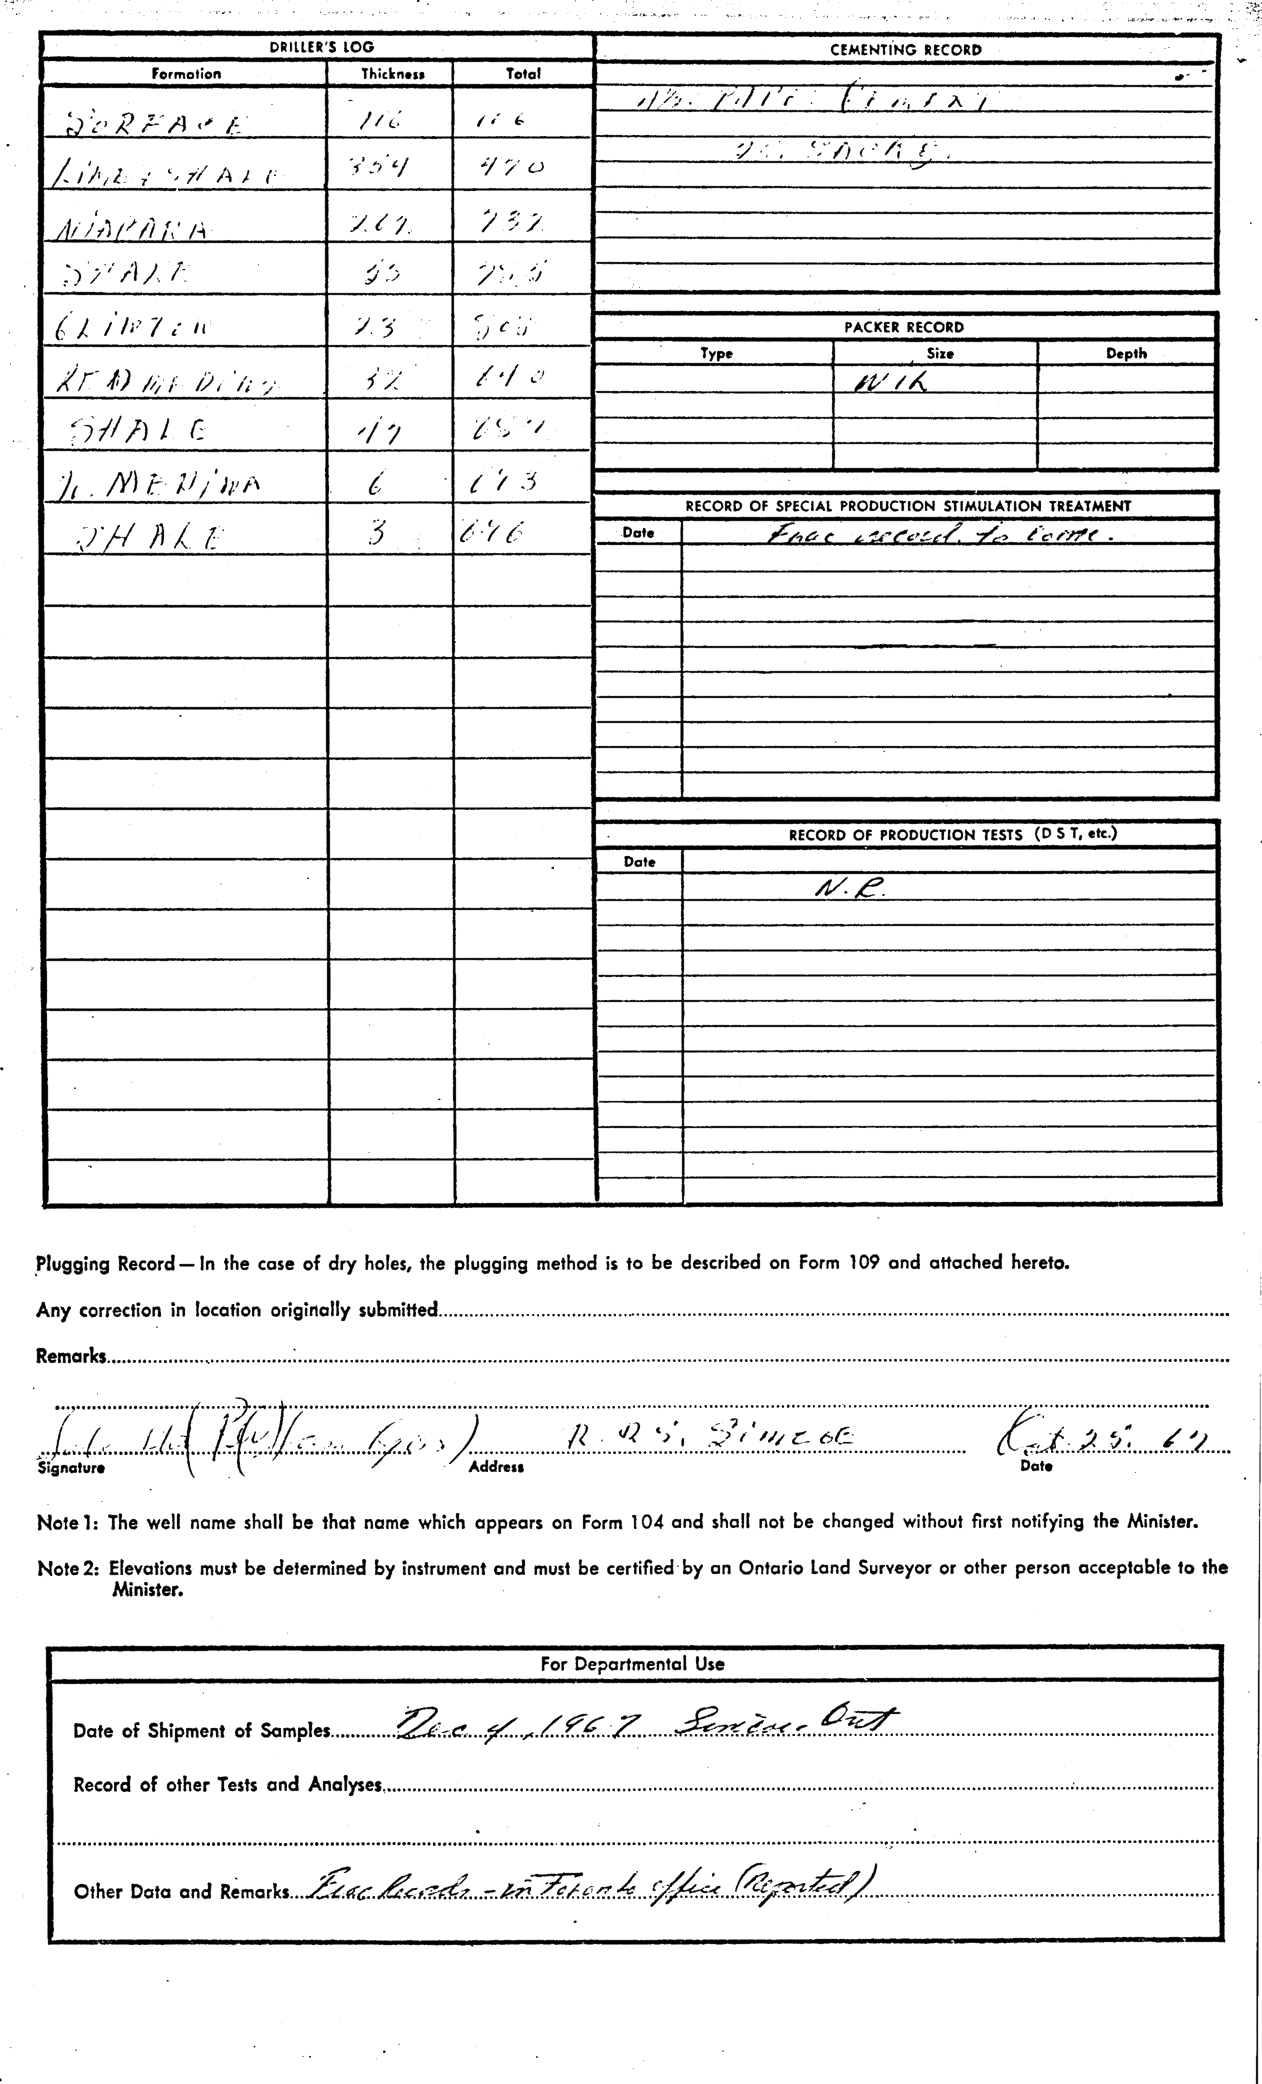 DRILLER'S LOG
Formation Thickness Total
SURFACE 116 116
LIME & SHALE 354 470
NIAGARA 262 732
SHALE 53
CLINTON 23 808
RED MEDINA 32 840
SHALE 47 887
W. MEDINA 6 893
SHALE 3 896
CEMENTING RECORD
CEMENT
SACKS.
PACKER RECORD
Type Size Depth
Nil
RECORD OF SPECIAL PRODUCTION STIMULATION TREATMENT
Date Frac record to come.
RECORD OF PRODUCTION TESTS (D S T, etc.)
Date
N.R.
Plugging Record — In the case of dry holes, the plugging method is to be described on Form 109 and attached hereto.
Any correction in location originally submitted
Remarks
R.R 5. SIMCOE Oct. 25. 67
Signature Address Date
Note 1: The well name shall be that name which appears on Form 104 and shall not be changed without first notifying the Minister.
Note 2: Elevations must be determined by instrument and must be certified by an Ontario Land Surveyor or other person acceptable to the
Minister.
For Departmental Use
Date of Shipment of Samples Dec 4, 1967 Simcoe Ont
Record of other Tests and Analyses
Other Data and Remarks Frac Records - in Toronto office (Reported)